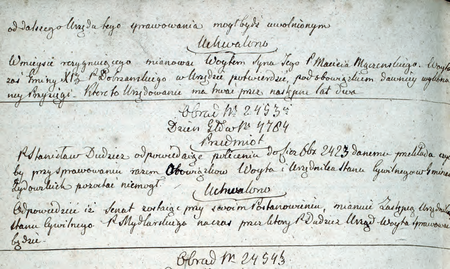 od dalszego Urzędu tego sprawowania mógł bydź uwolnionym
Uchwalono
W miejsce rezygnującego mianować Woytem Syna Jego P. Macieja Mączenskiego. Woyta
zaś Gminy XI. P. Dobrzanskiego w Urzędzie potwierdzić, pod obowiązkiem dawniey wykona
ney Przysięgi. Które to Urzędowanie ma trwać przez następne lat dwa
Obrad Nr 24533
Dzien. Głów. Nr 4784
Przedmiot
P. Stanisław Dudzicz odpowiedając poleceniu do 2423 danemu przekłada
by przy sprawowaniu razem Obowiązków Woyta i Urzędnika Stanu Cywilnego w Gminie
Żydowskich pozostać niemógł
Uchwalono
Odpowiedzieć iż Senat zostając przy swoim Postanowieniu, mianuje Zastępcę Urzędnika
Stanu Cywilnego P. Mydlarskiego na czas przez który P. Dudzicz Urząd Woyta sprawować
będzie.
Obrad Nr 24543